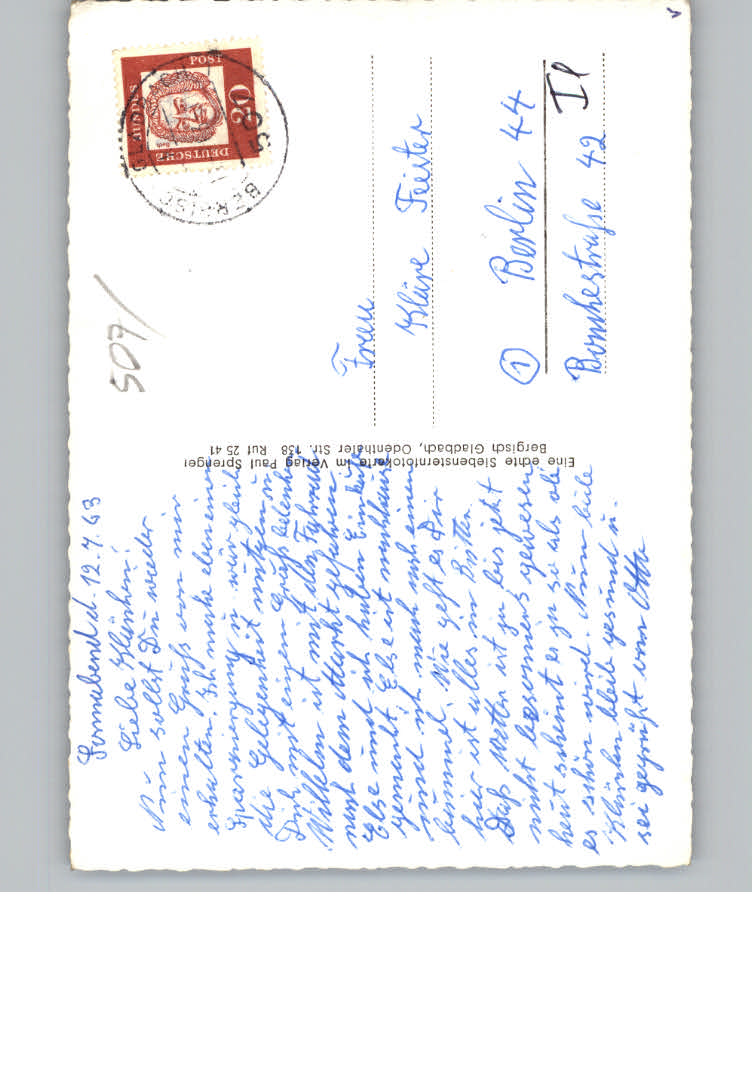 Sonnabend d. 12.7.63
Liebe Klärchen!
Nun sollst Du wieder
einen Gruß von mir
erhalten. Ich mache eben einen
Spaziergang u. will gleich
die Gelegenheit nutzen u.
Dich mit einem Gruß
Wilhelm ist mit dem Fahrrad
nach dem Markt gefahren
Else und ich haben Einkäufe
gemacht. Else ist nachhause
und ich mach noch einen
bummel. Wie geht es Dir
hier ist alles in Butter.
Daß Wetter ist ja bis jetzt
nicht besonders gewesen
heut scheint es ja so als ob
es schön wird. Nun liebe
Klärchen bleibe gesund u.
sei gegrüßt von Otto
Eine echte Siebensternfotokarte im Verlag Paul Sprenger
Bergisch Gladbach, Odenthaler Str. 138 Ruf 25 41
507/
DEUTSCHE BUNDESPOST
20
BERGISCH GLADBACH
Frau
Kläre Feister
1 Berlin 44
II
straße 42